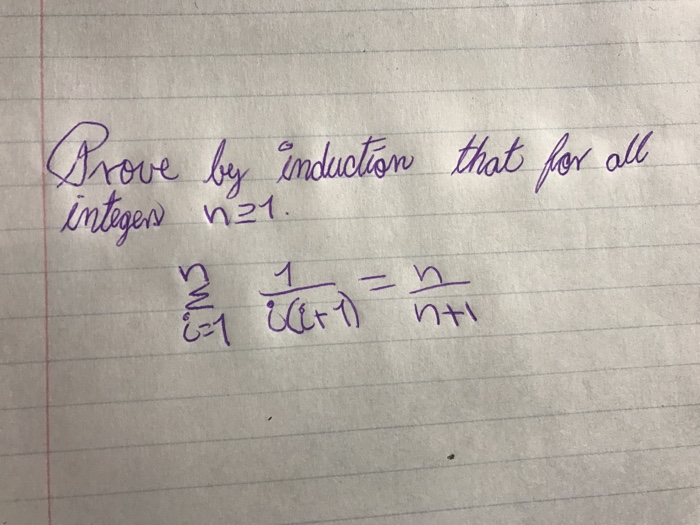 Prove by induction that for all
integers n≥1.
n
∑ 1/i(i+1) = n/n+1
i=1